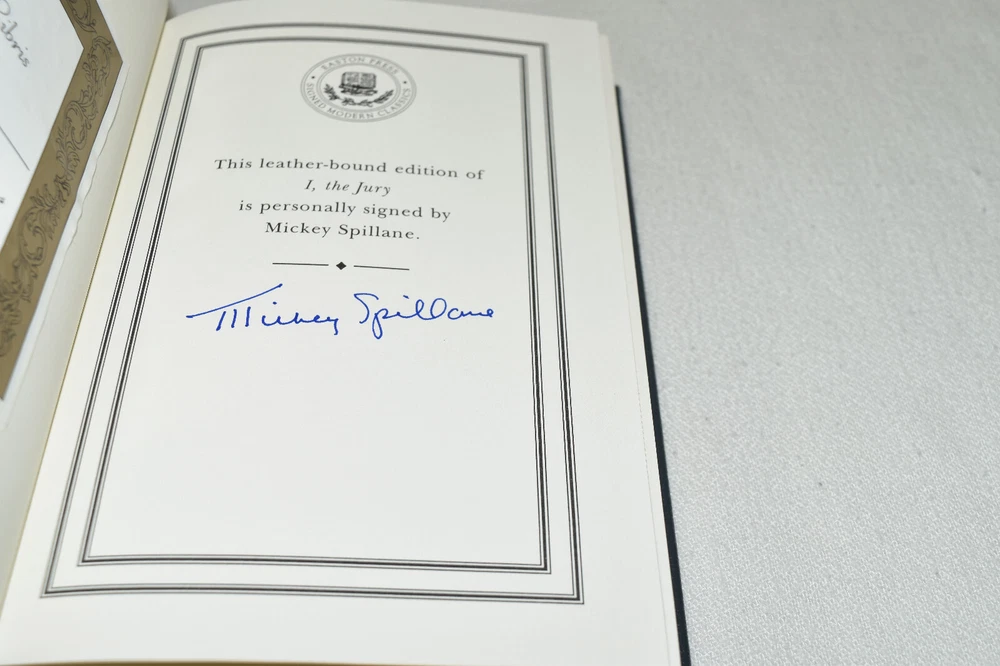 ibris
EASTON PRESS
SIGNED MODERN CLASSICS
This leather-bound edition of
I, the Jury
is personally signed by
Mickey Spillane.
Mickey Spillane